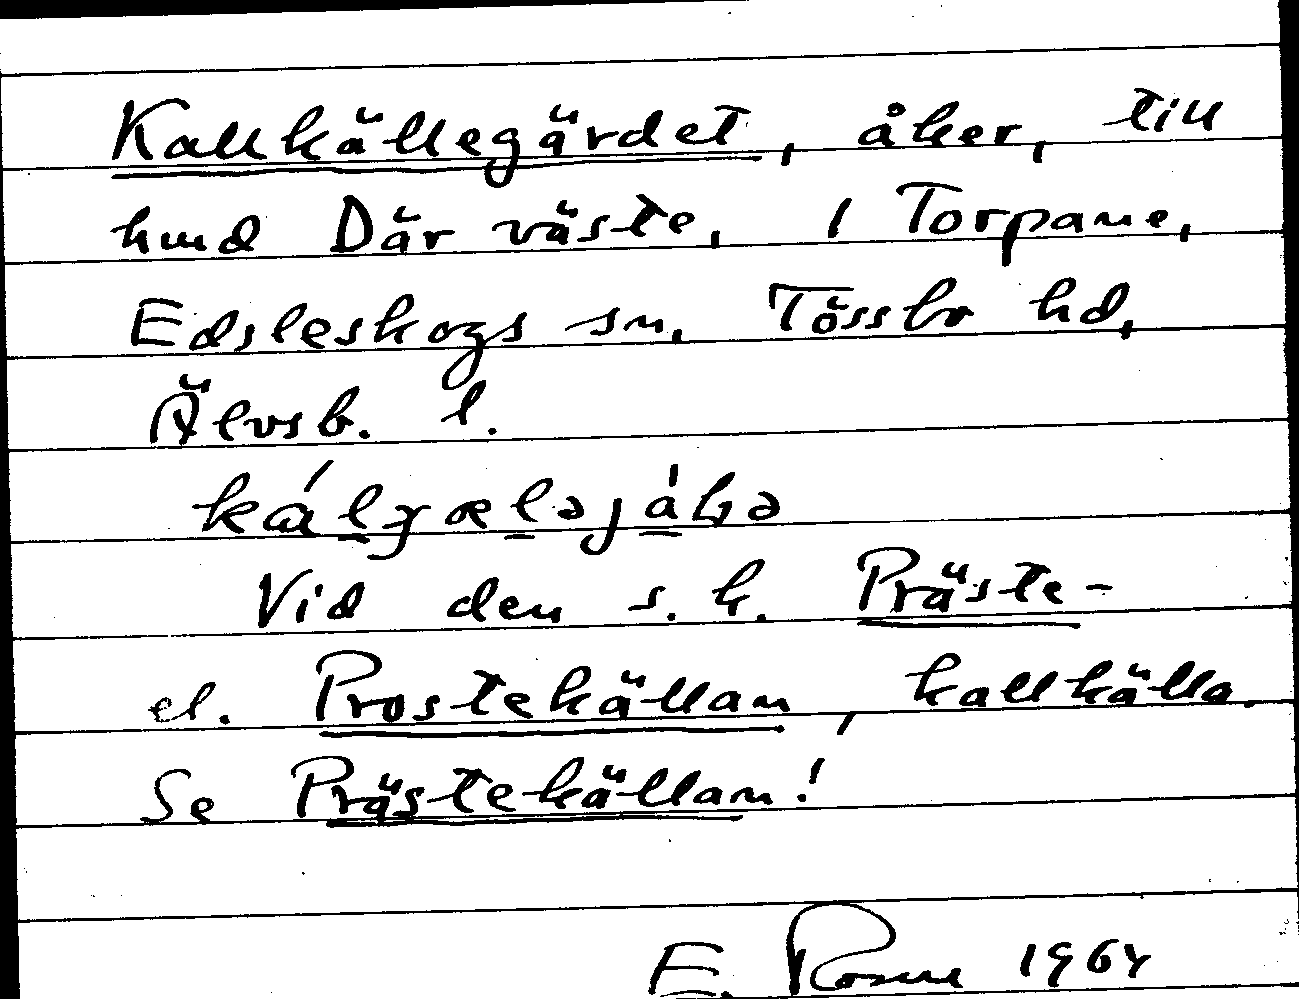 Kallkällegärdet, åker, till
hmd Där väste, 1 Torpane,
Edsleskogs sn, Tössbo hd,
Älvsb. l.
Vid den s.k. Präste-
el. Prostekällan, kallkälla.
Se Prästekällan!
E. 1964